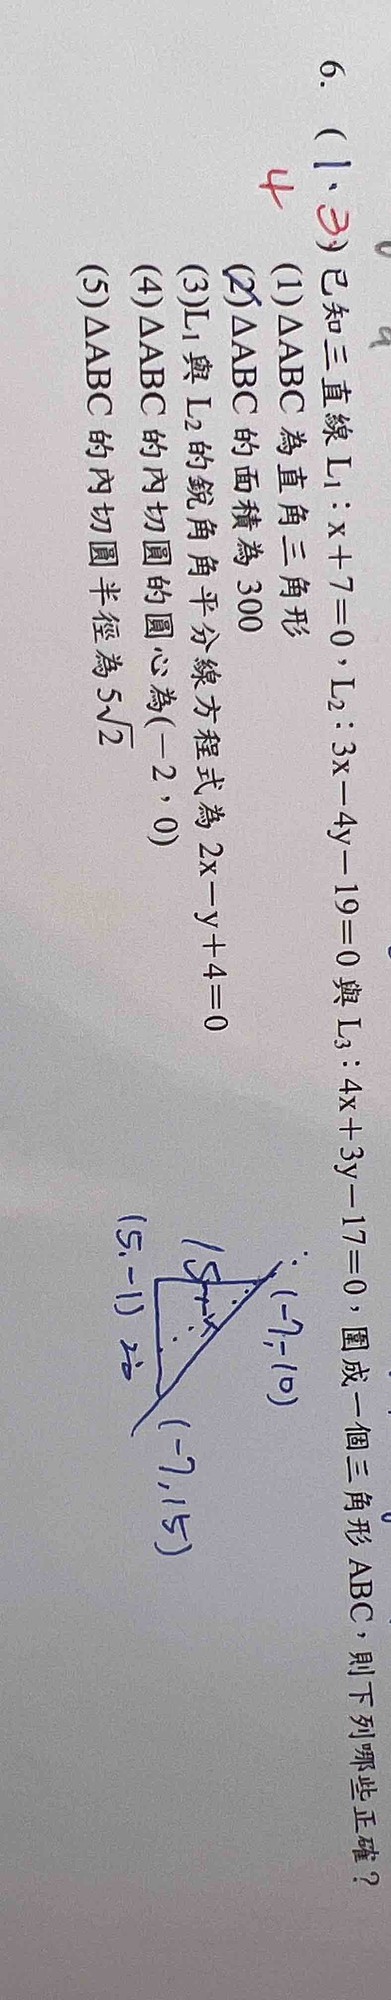 6. (1、3、4) 已知三直線 L₁：x＋7＝0，L₂：3x－4y－19＝0 與 L₃：4x＋3y－17＝0，圍成一個三角形 ABC，則下列哪些正確？
(1)△ABC 為直角三角形
(2)△ABC 的面積為 300
(3)L₁ 與 L₂ 的銳角角平分線方程式為 2x－y＋4＝0
(4)△ABC 的內切圓的圓心為(－2，0)
(5)△ABC 的內切圓半徑為 5√2
(-7,-10)
(-7,15)
15
(5,-1)
20